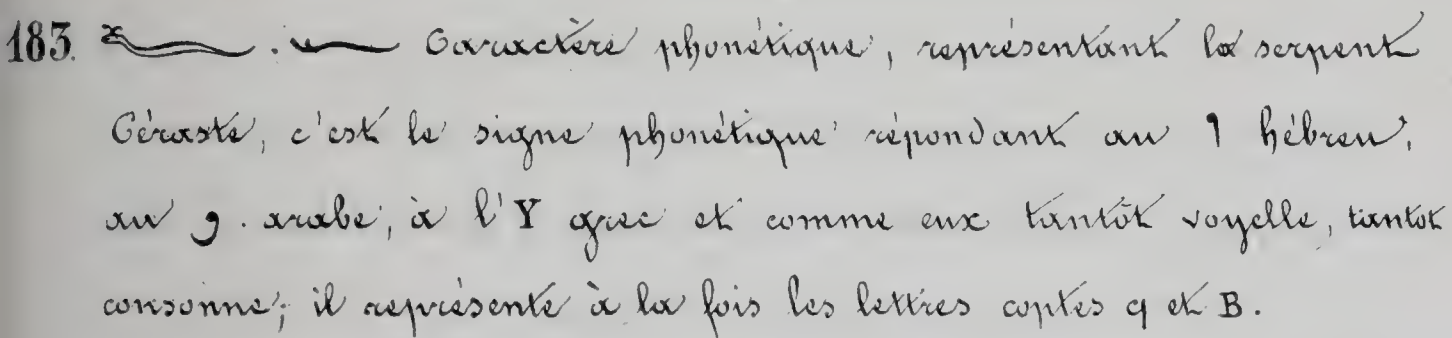 183. 𓆑 . 𓆑 Caractère phonétique, représentant la serpent
Céraste, c'est le signe phonétique répondant au ו hébreu,
au و. arabe, à l'Y grec et comme eux tantôt voyelle, tantot
consonne; il représente à la fois les lettres coptes ϥ et B.